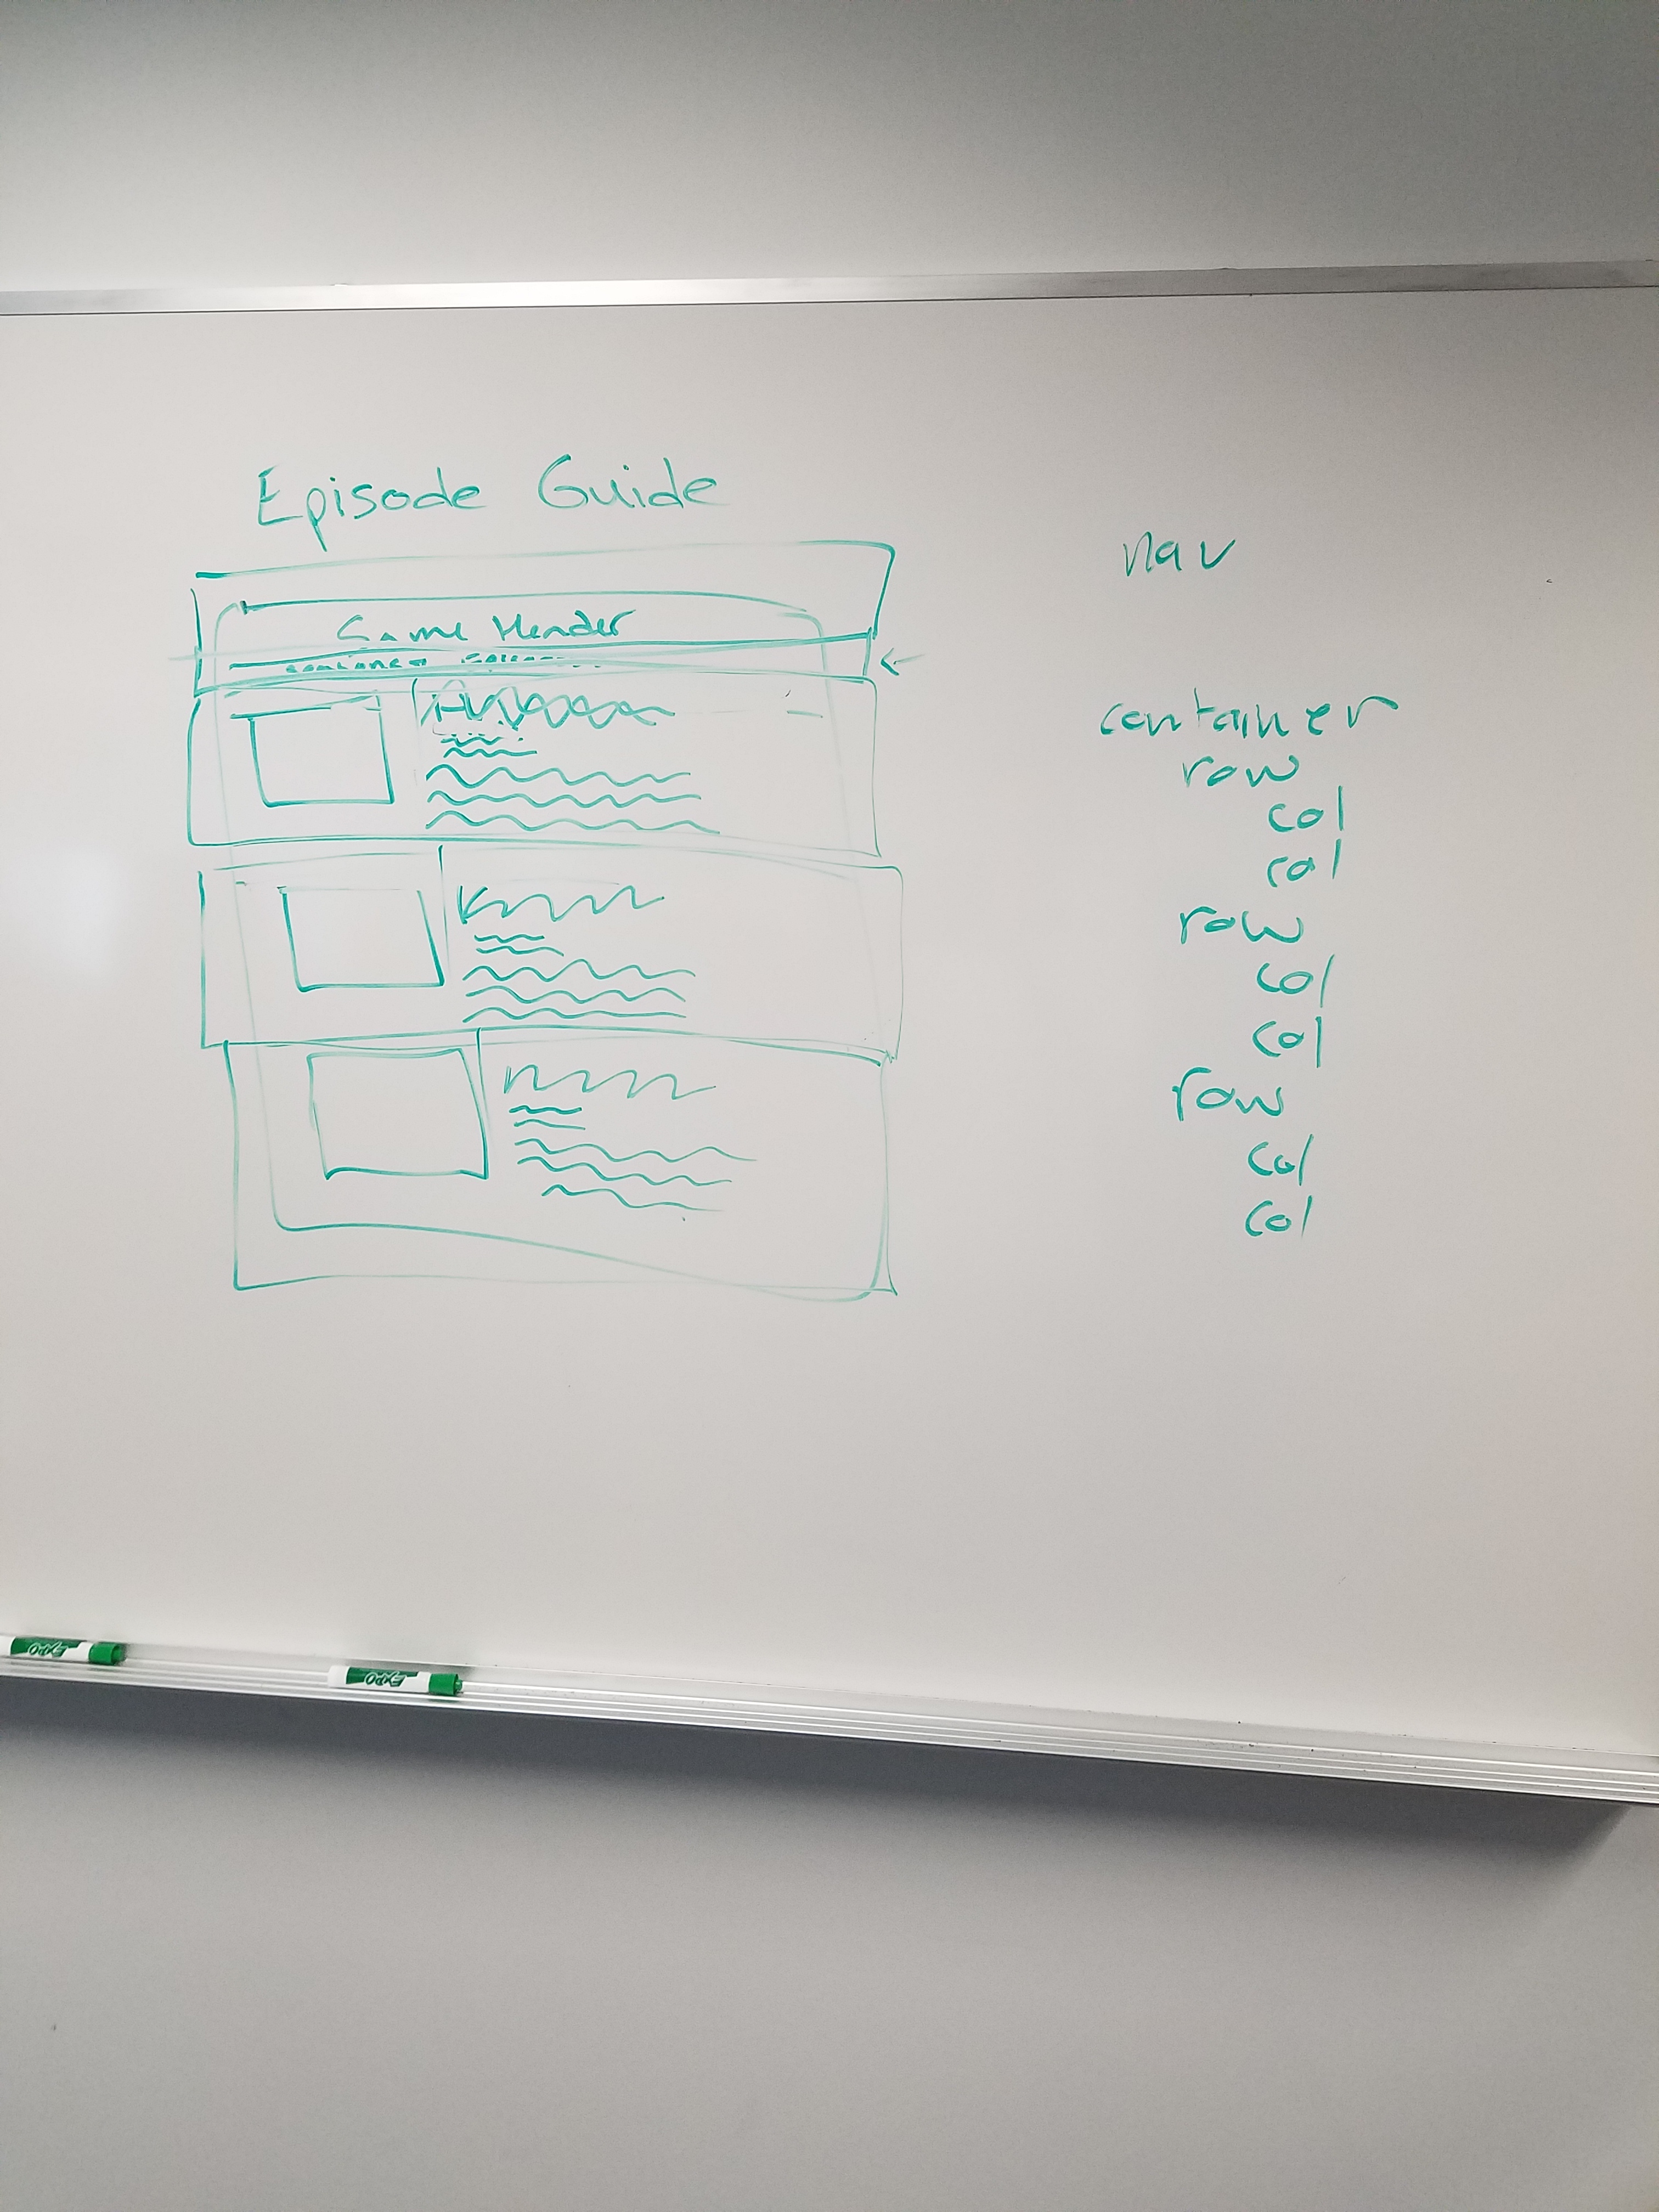 Episode Guide
Same Header
nav
container
row
col
col
row
col
col
row
col
col
EXPO
EXPO